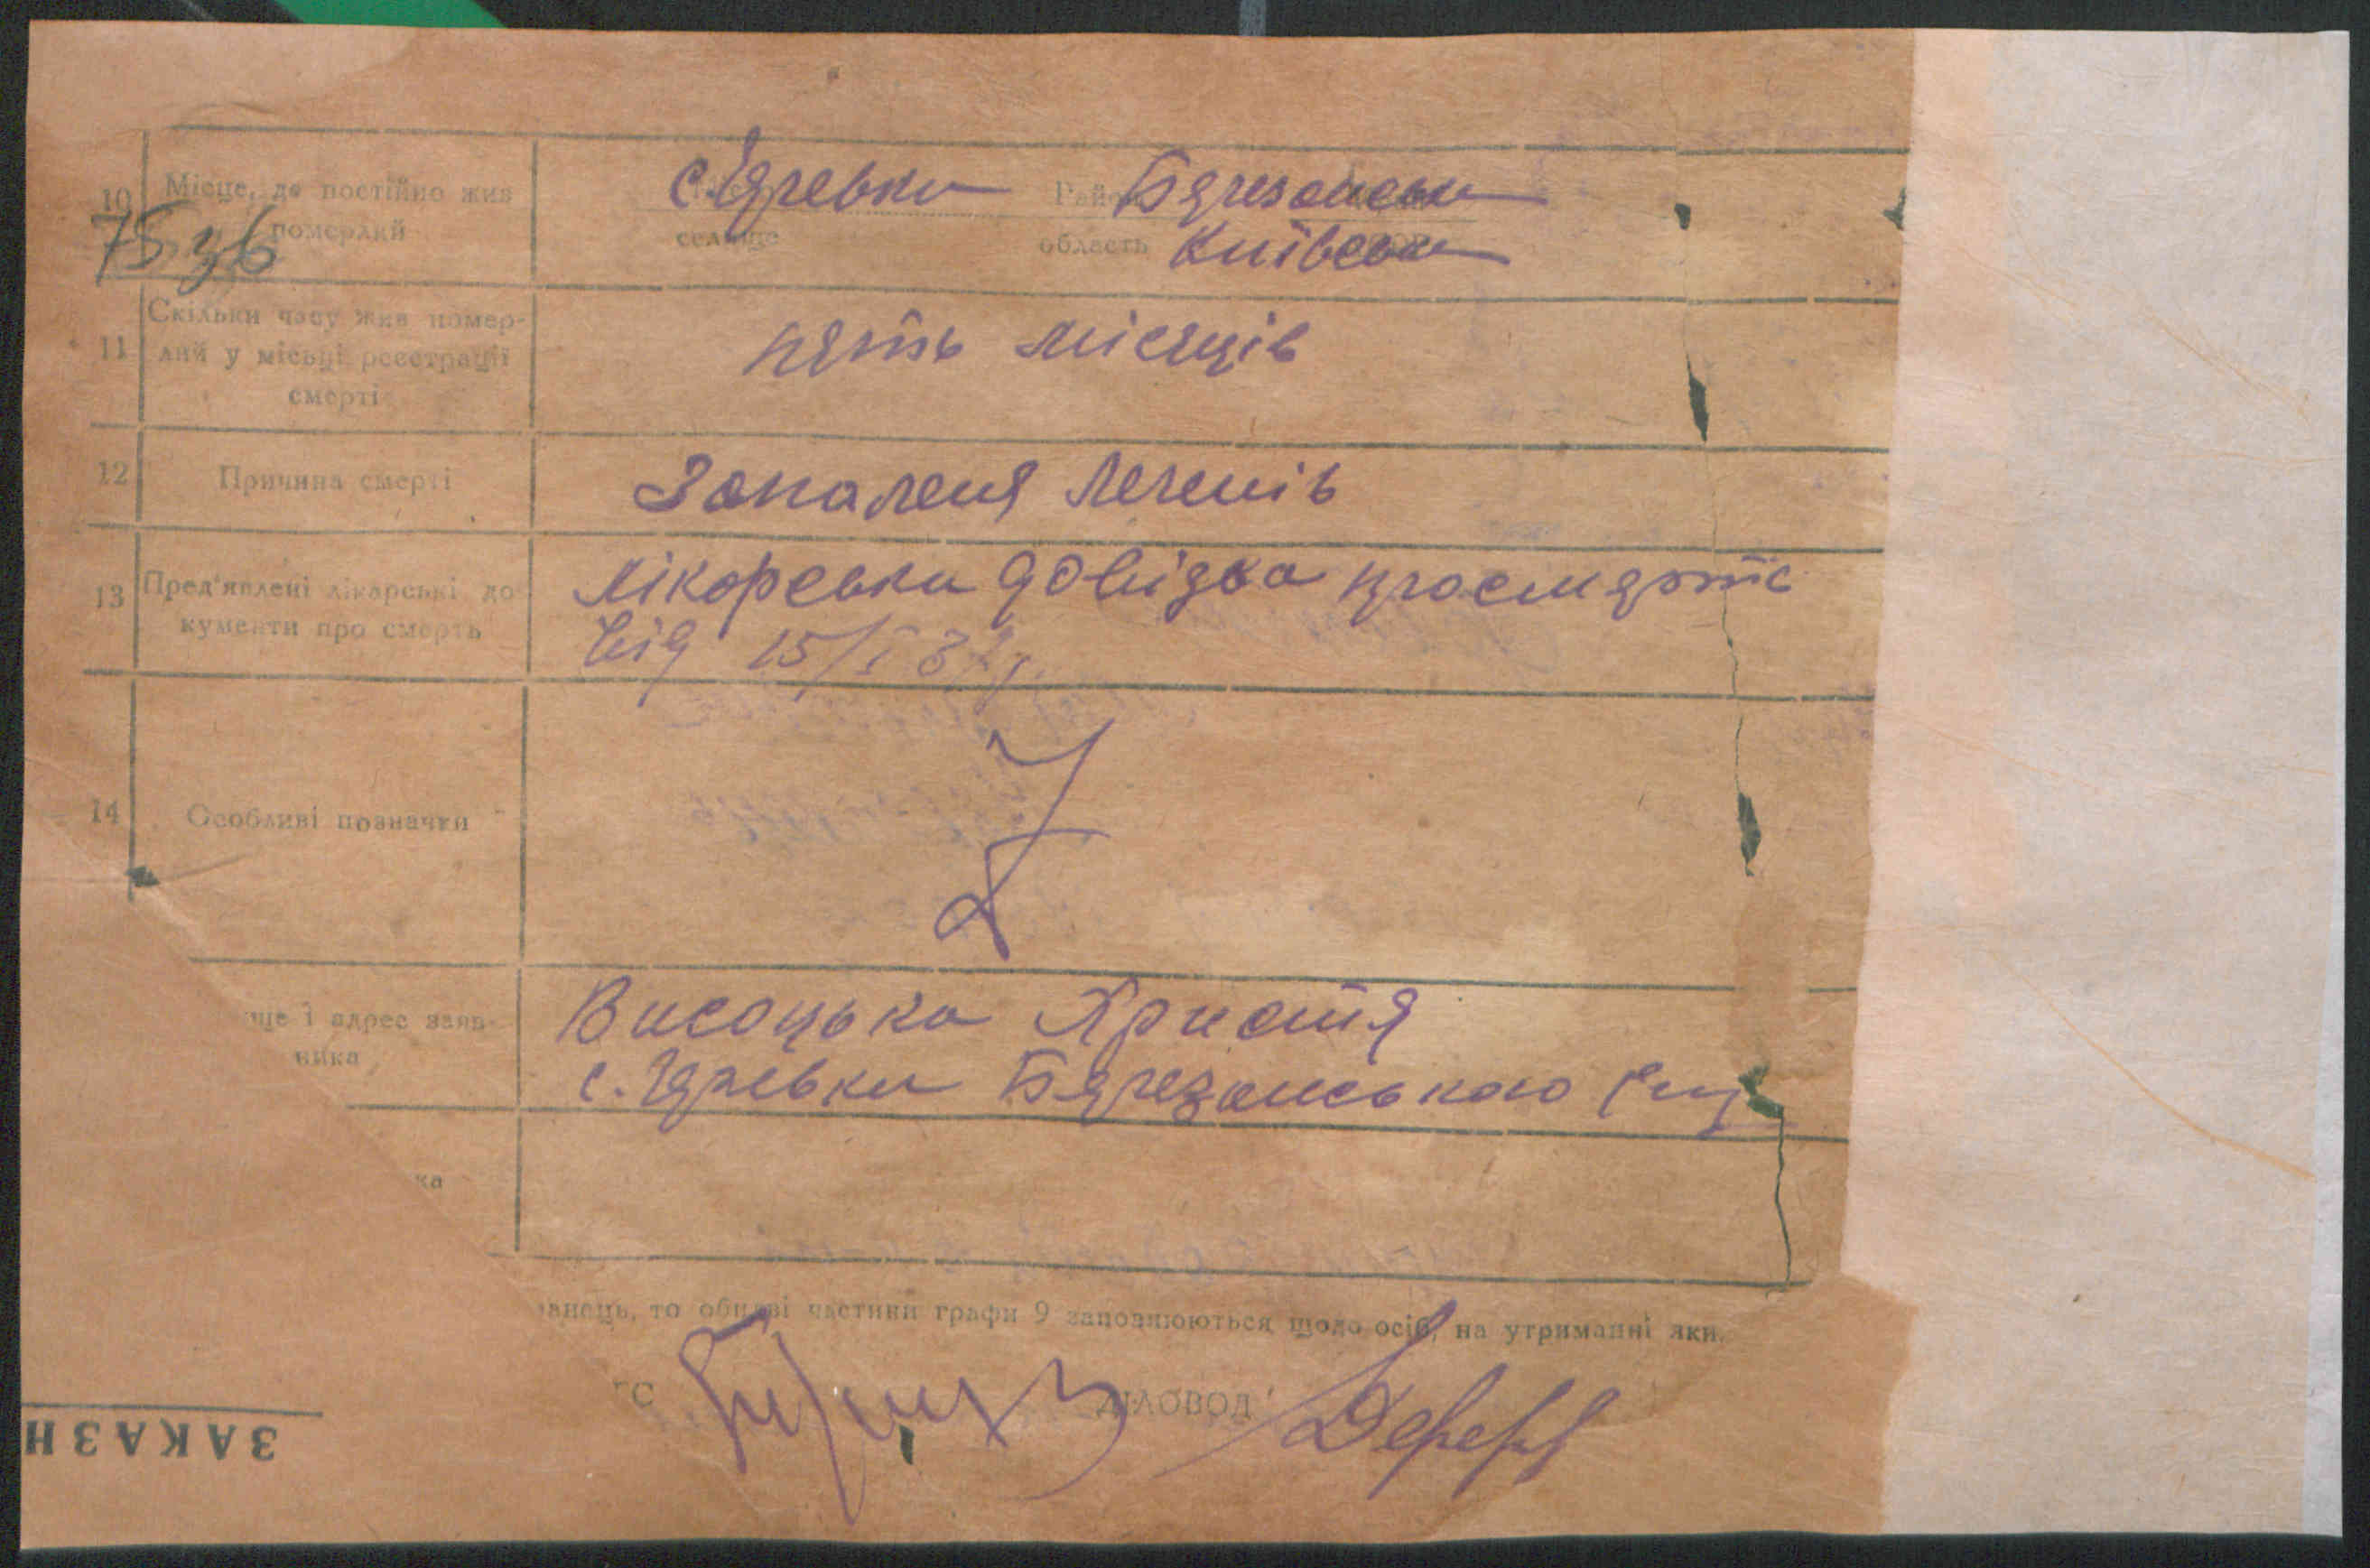 10 Місце, де постійно жив
померлий
75 зв
с Яревки Район Бярезанськи
селище область Київська
11 Скільки часу жив помер-
лий у місьці реєстрації
смерті
пять місяців
12 Причина смерті Запаленя Легенів
13 Пред'явлені лікарські до
кументи про смерть
лікорська довідка просмярть
від 15/I 37 г.
14 Особливі позначки
ще і адрес заяв-
ника
Висоцька Христя
с. Яревки Бярезанського
ка
анець, то обидві частини графи 9 заповнюються щодо осіб, на утриманні яки
ГС ДІЛОВОД
ЗАКАЗН